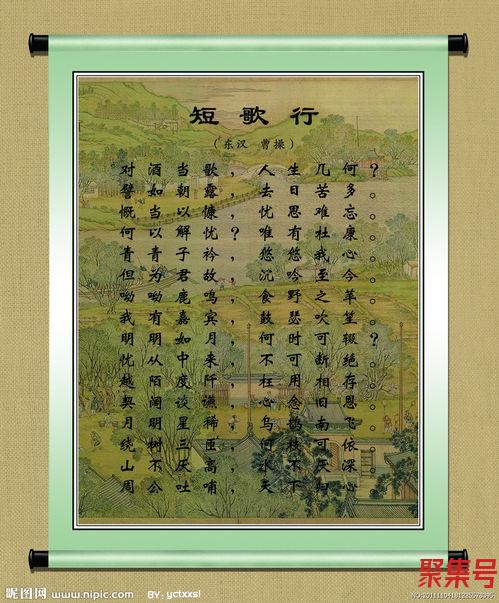 短歌行
（东汉 曹操）
对酒当歌，人生几何？
譬如朝露，去日苦多。
慨当以慷，忧思难忘。
何以解忧？唯有杜康。
青青子衿，悠悠我心。
但为君故，沉吟至今。
呦呦鹿鸣，食野之苹。
我有嘉宾，鼓瑟吹笙。
明明如月，何时可辍？
忧从中来，不可断绝。
越陌度阡，枉用相存。
契阔谈讌，心念旧恩。
月明星稀，乌鹊南飞。
绕树三匝，何枝可依。
山不厌高，水不厌深。
周公吐哺，天下归
昵图网 www.nipic.com BY：yctxxsl
聚集号
NO:20111104181225678395